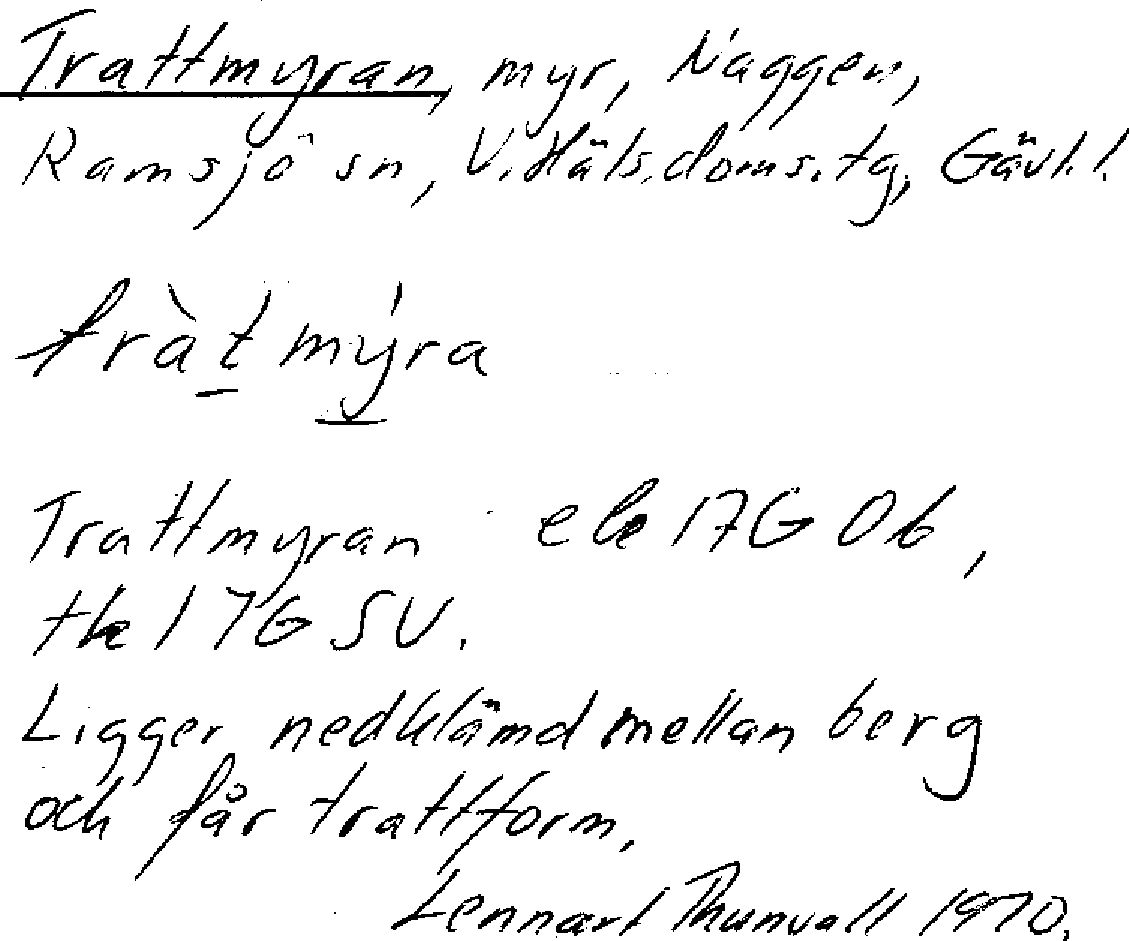 Trattmyran, myr, Naggen,
Ramsjö sn, V. Häls. doms.tg, Gävl.l.
tràt mýra
Trattmyran ek 17G 0b,
tk 17G SV.
Ligger nedklämd mellan berg
och får trattform.
Lennart Thunvall 1970.